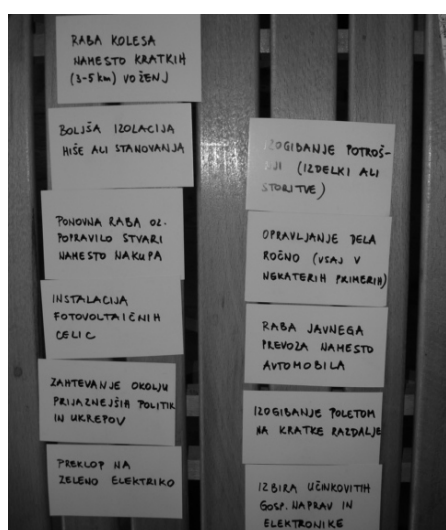 RABA KOLESA
NAMESTO KRATKIH
(3-5 km) VOŽENJ
BOLJŠA IZOLACIJA
HIŠE ALI STANOVANJA
PONOVNA RABA OZ.
POPRAVILO STVARI
NAMESTO NAKUPA
INSTALACIJA
FOTOVOLTAIČNIH
CELIC
ZAHTEVANJE OKOLJU
PRIJAZNEJŠIH POLITIK
IN UKREPOV
PREKLOP NA
ZELENO ELEKTRIKO
IZOGIBANJE POTROŠ-
NJI (IZDELKI ALI
STORITVE)
OPRAVLJANJE DELA
ROČNO (VSAJ V
NEKATERIH PRIMERIH)
RABA JAVNEGA
PREVOZA NAMESTO
AVTOMOBILA
IZOGIBANJE POLETOM
NA KRATKE RAZDALJE
IZBIRA UČINKOVITIH
GOSP. NAPRAV IN
ELEKTRONIKE